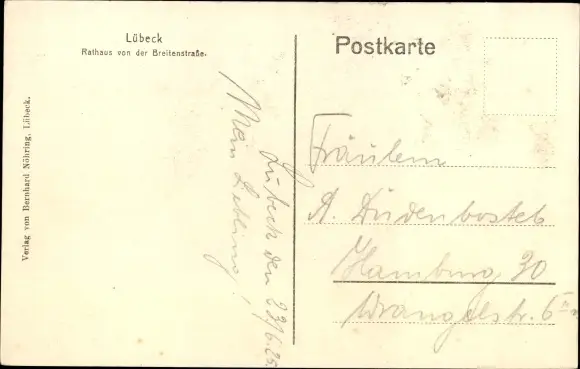 Lübeck
Rathaus von der Breitenstraße.
Verlag von Bernhard Nöhring, Lübeck.
Lübeck den 23/6.25.
Mein Liebling!
Postkarte
Fräulein
A. Dudenbostel
Hamburg 30
Wrangelstr. 6